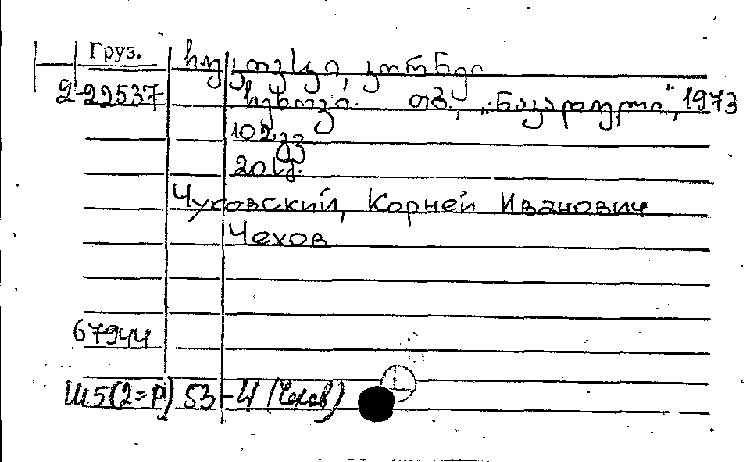 Груз.
ჩუკოვსკი, კორნეი
2-22537 ჩეხოვი. თბ., „ნაკადული“, 1973
102 გვ.
20 კ.
Чуковский, Корней Иванович
Чехов
67944
Ш5(2=Р) 53-4 (Чехов)